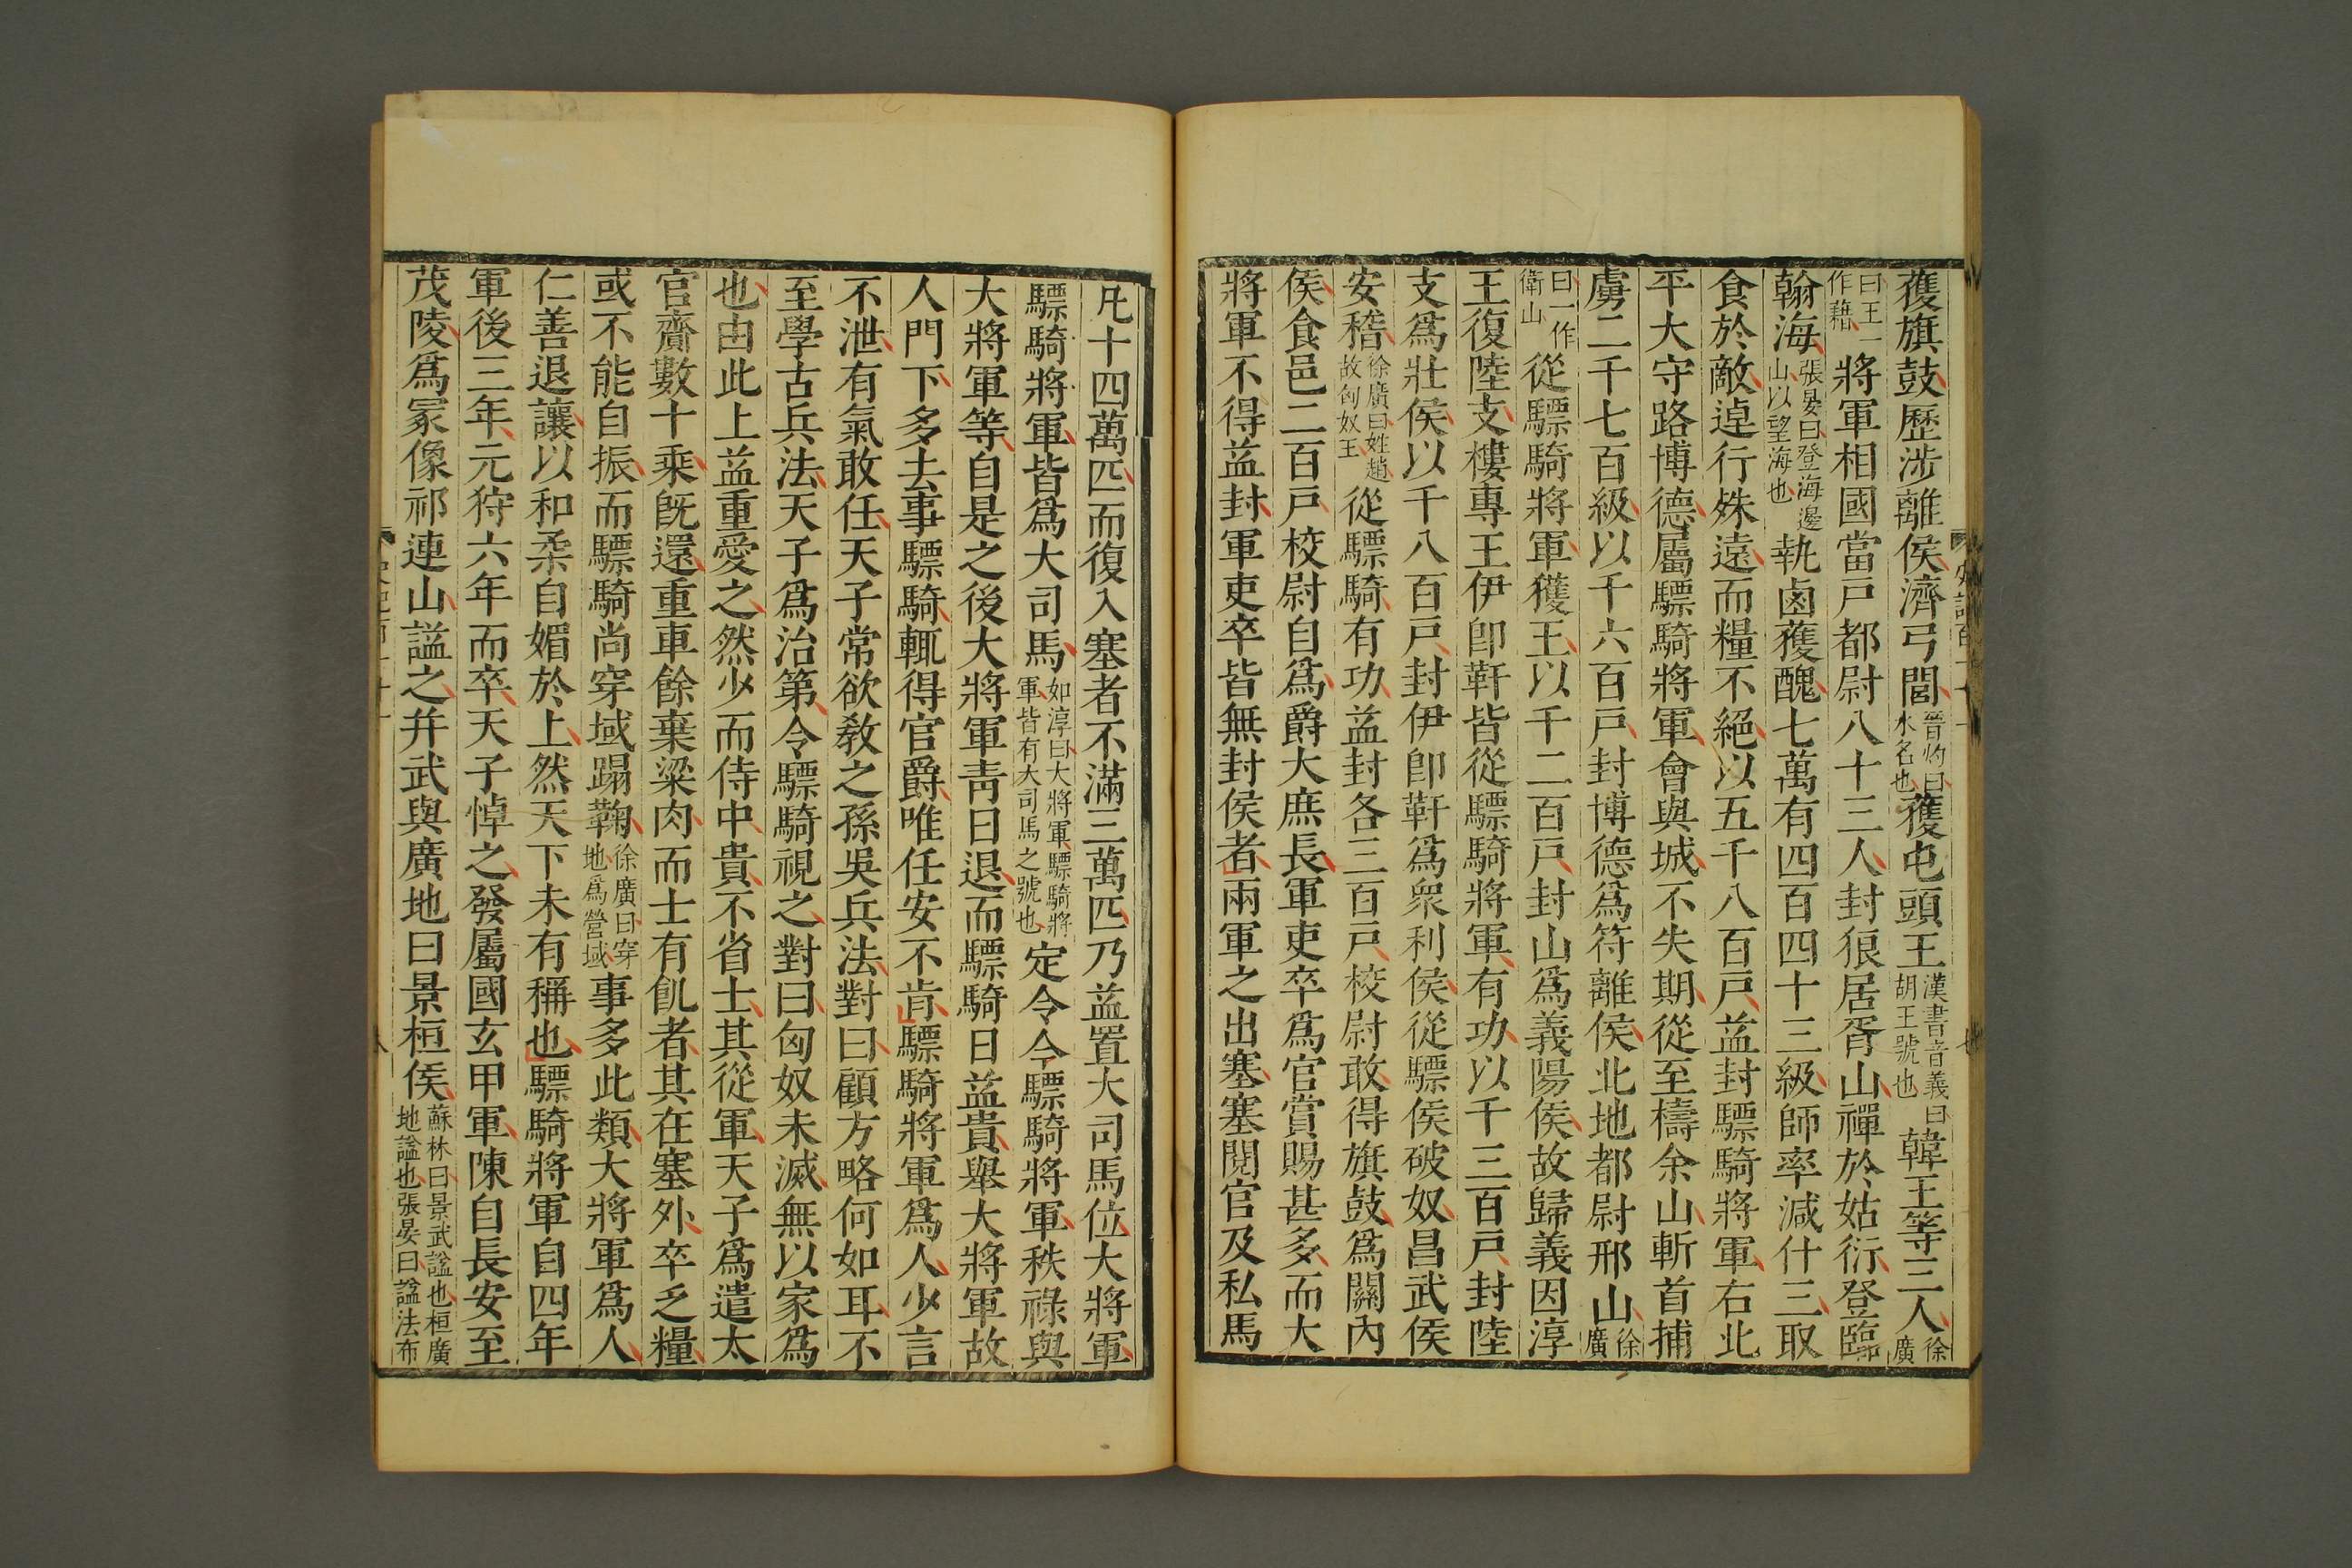 獲旗鼓歷涉離侯濟弓閭晉灼曰水名也獲屯頭王漢書音義曰胡王號也韓王等三人徐廣
曰王一作藉將軍相國當戶都尉八十三人封狼居胥山禪於姑衍登臨
翰海張晏曰登海邊山以望海也執鹵獲醜七萬有四百四十三級師率減什三取
食於敵逴行殊遠而糧不絕以五千八百戶益封驃騎將軍右北
平大守路博德屬驃騎將軍會與城不失期從至檮余山斬首捕
虜二千七百級以千六百戶封博德爲符離侯北地都尉邢山徐廣
曰一作衛山從驃騎將軍獲王以千二百戶封山爲義陽侯故歸義因淳
王復陸支樓專王伊卽靬皆從驃騎將軍有功以千三百戶封陸
支爲壯侯以千八百戶封伊卽靬爲衆利侯從驃侯破奴昌武侯
安稽徐廣曰姓趙故匈奴王從驃騎有功益封各三百戶校尉敢得旗鼓爲關內
侯食邑二百戶校尉自爲爵大庶長軍吏卒爲官賞賜甚多而大
將軍不得益封軍吏卒皆無封侯者兩軍之出塞塞閱官及私馬
凡十四萬匹而復入塞者不滿三萬匹乃益置大司馬位大將軍
驃騎將軍皆爲大司馬如淳曰大將軍驃騎將軍皆有大司馬之號也定令令驃騎將軍秩祿與
大將軍等自是之後大將軍靑日退而驃騎日益貴舉大將軍故
人門下多去事驃騎輒得官爵唯任安不肯驃騎將軍爲人少言
不泄有氣敢任天子常欲敎之孫吳兵法對曰顧方略何如耳不
至學古兵法天子爲治第令驃騎視之對曰匈奴未滅無以家爲
也由此上益重愛之然少而侍中貴不省士其從軍天子爲遣太
官齎數十乘旣還重車餘棄粱肉而士有飢者其在塞外卒乏糧
或不能自振而驃騎尚穿域蹋鞠徐廣曰穿地爲營域事多此類大將軍爲人
仁善退讓以和柔自媚於上然天下未有稱也驃騎將軍自四年
軍後三年元狩六年而卒天子悼之發屬國玄甲軍陳自長安至
茂陵爲冢像祁連山謚之幷武與廣地曰景桓侯蘇林曰景武謚也桓廣地謚也張晏曰謚法布